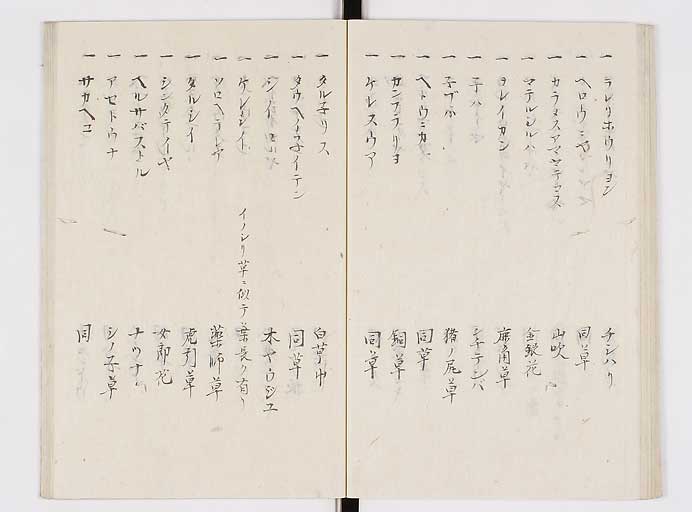 一 ラレリホウリヨン チンハリ
一 ヘロウニヤ 同草
一 カラマスアマヤテマス 山吹
一 マテルシルハ 金銀花
一 ヨレイカン 麻角草
一 子ハ シチテンバ
一 子ブル 猪ノ尻草
一 ヘトウニカ 同草
一 カンフラリヨ 銅草
一 ケレスウア 同草
一 タル子リス
一 タウヘイ子イテン 同草
一 シノイ 木ヤウジユ
一 ケレシイト イノシリ草ニ似テ葉長ク有リ
一 ソロヘラレヤ 薬師草
一 タルシイ 虎列草
一 シンタテイヤ 女郎花
一 ヘルサバストル ナツナ
一 アセトウナ シノ子草
一 サカヘコ 同